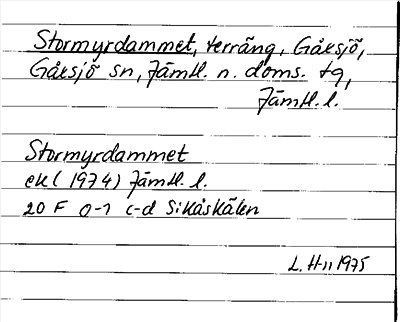 Stormyrdammet, terräng, Gåxsjö,
Gåxsjö sn, Jämtl. n. doms. tg,
Jämtl. l.
Stormyrdammet
ek (1974) Jämtl. l.
20 F 0-1 c-d Sikåskälen
L. H-n 1975